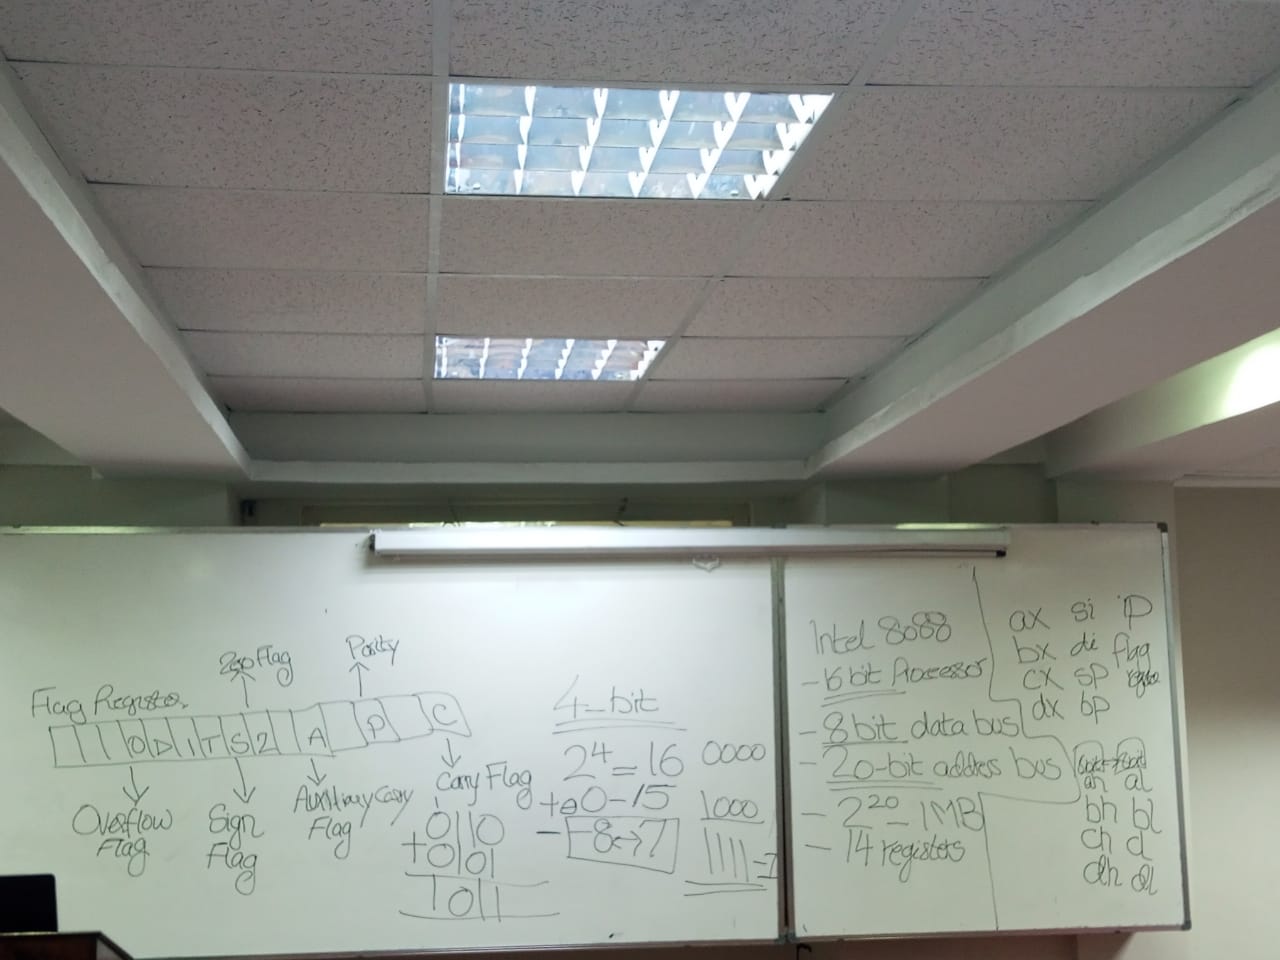 Zero Flag
Parity
Flag Register
O D I T S Z A P C
Overflow Flag
Sign Flag
Auxiliary Carry Flag
Carry Flag
0110
+0101
1011
4-bit
2⁴=16 0000
+ 0-15 1000
- -8↔7 1111
Intel 8088
-16 bit Processor
- 8 bit data bus
- 20-bit address bus
- 2²⁰= 1MB
- 14 registers
ax si ip
bx di flag
cx sp
dx bp
ah al
bh bl
ch cl
dh dl